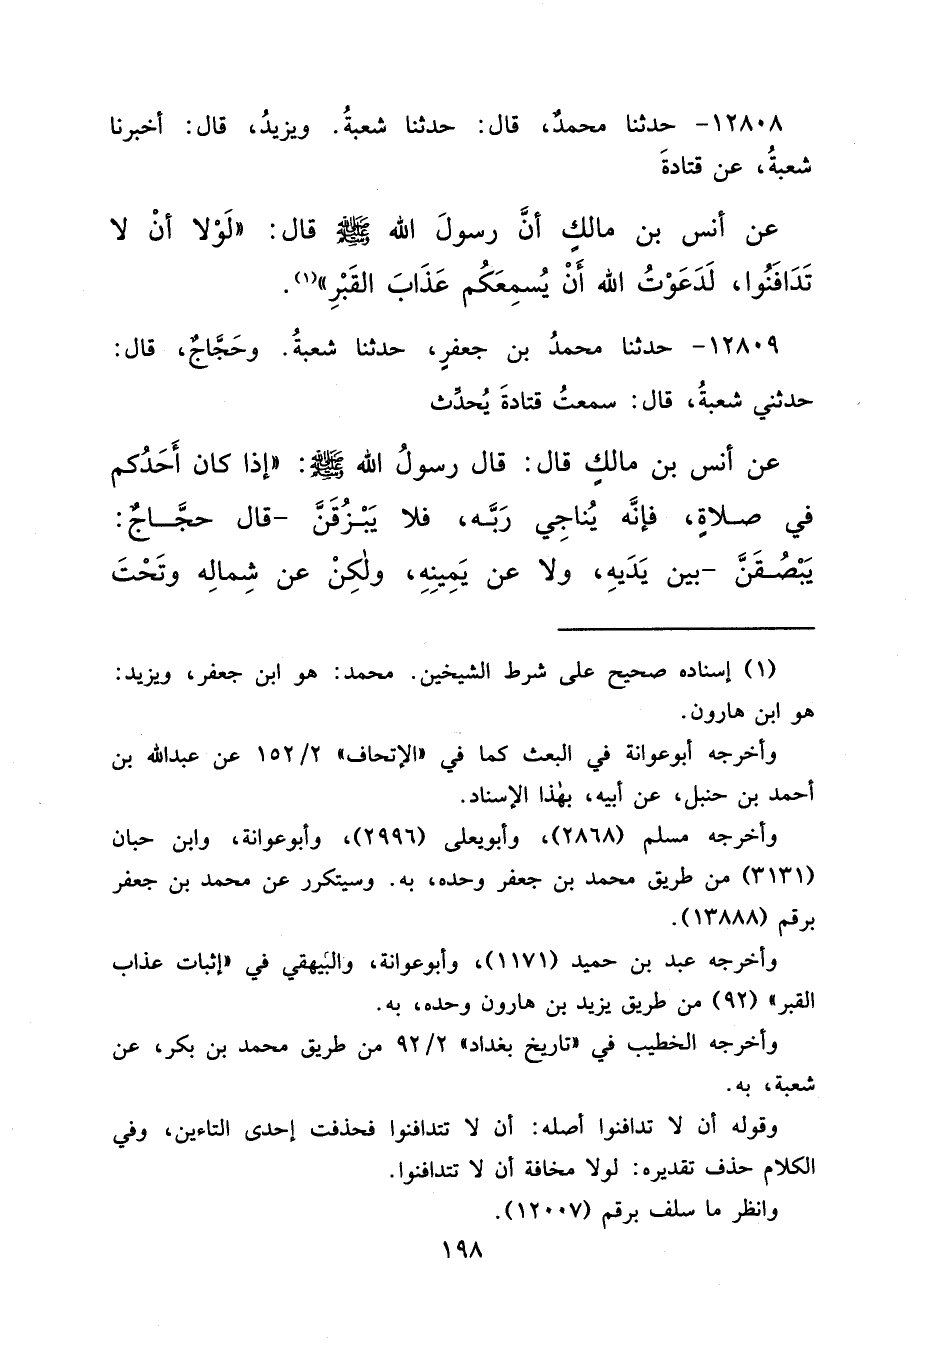 ١٢٨٠٨- حدثنا محمدٌ، قال: حدثنا شعبةُ. ويزيدُ، قال: أخبرنا
شعبةُ، عن قتادةَ
عن أنس بن مالكٍ أنَّ رسولَ الله ﷺ قال: «لَوْلا أنْ لا
تَدَافَنُوا، لَدَعَوْتُ الله أَنْ يُسمِعَكُم عَذَابَ القَبْرِ»(١).
١٢٨٠٩- حدثنا محمدُ بن جعفرٍ، حدثنا شعبةُ. وحَجَّاجٌ، قال:
حدثني شعبةُ، قال: سمعتُ قتادةَ يُحدِّث
عن أنس بن مالكٍ قال: قال رسولُ الله ﷺ: «إذا كان أَحَدُكم
في صـلاةٍ، فإنَّه يُناجِي رَبَّـه، فلا يَبْـزُقَنَّ -قال حجَّـــاجٌ:
يَبْصُـقَنَّ -بين يَدَيهِ، ولا عن يَمِينِهِ، ولٰكِنْ عن شِمالِه وتَحْتَ
(١) إسناده صحيح على شرط الشيخين. محمد: هو ابن جعفر، ويزيد:
هو ابن هارون.
وأخرجه أبوعوانة في البعث كما في «الإتحاف» ١٥٢/٢ عن عبدالله بن
أحمد بن حنبل، عن أبيه، بهٰذا الإسناد.
وأخرجه مسلم (٢٨٦٨)، وأبويعلى (٢٩٩٦)، وأبوعوانة، وابن حبان
(٣١٣١) من طريق محمد بن جعفر وحده، به. وسيتكرر عن محمد بن جعفر
برقم (١٣٨٨٨).
وأخرجه عبد بن حميد (١١٧١)، وأبوعوانة، والبَيهقي في «إثبات عذاب
القبر» (٩٢) من طريق يزيد بن هارون وحده، به.
وأخرجه الخطيب في «تاريخ بغداد» ٩٢/٢ من طريق محمد بن بكر، عن
شعبة، به.
وقوله أن لا تدافنوا أصله: أن لا تتدافنوا فحذفت إحدى التاءين، وفي
الكلام حذف تقديره: لولا مخافة أن لا تتدافنوا.
وانظر ما سلف برقم (١٢٠٠٧).
١٩٨